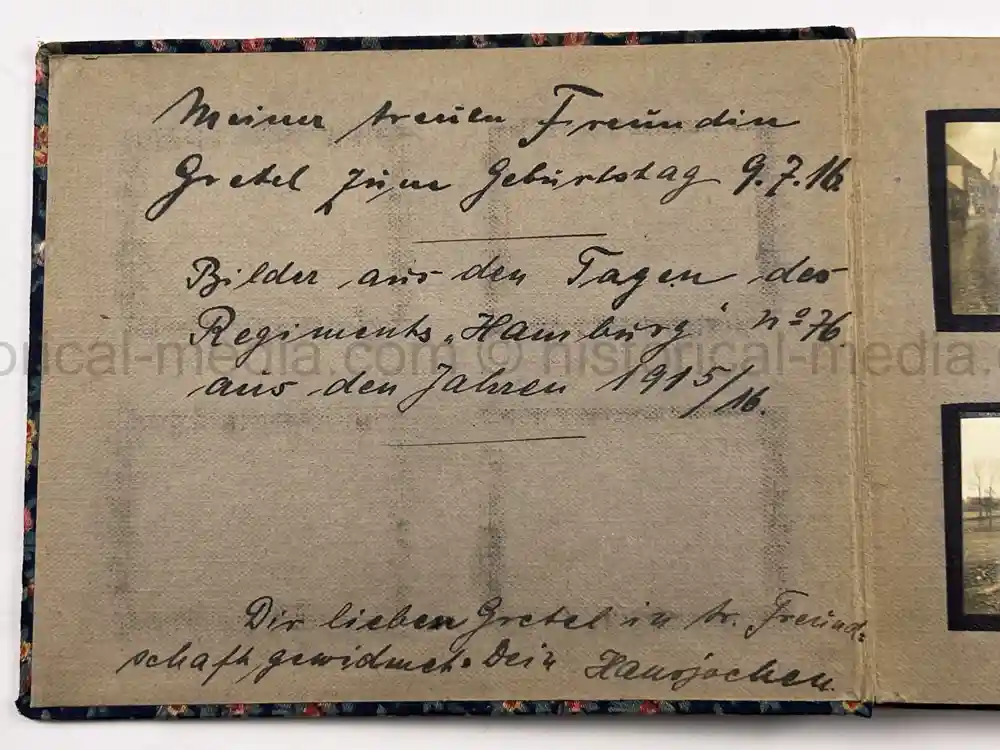 Meiner treuen Freundin
Gretel zum Geburtstag 9.7.16.
Bilder aus den Tagen des
Regiments „Hamburg“ No 76.
aus den Jahren 1915/16.
Dir lieben Gretel in tr. Freund-
schaft gewidmet. Dein Hansjochen.
orical-media.com © historical-media.